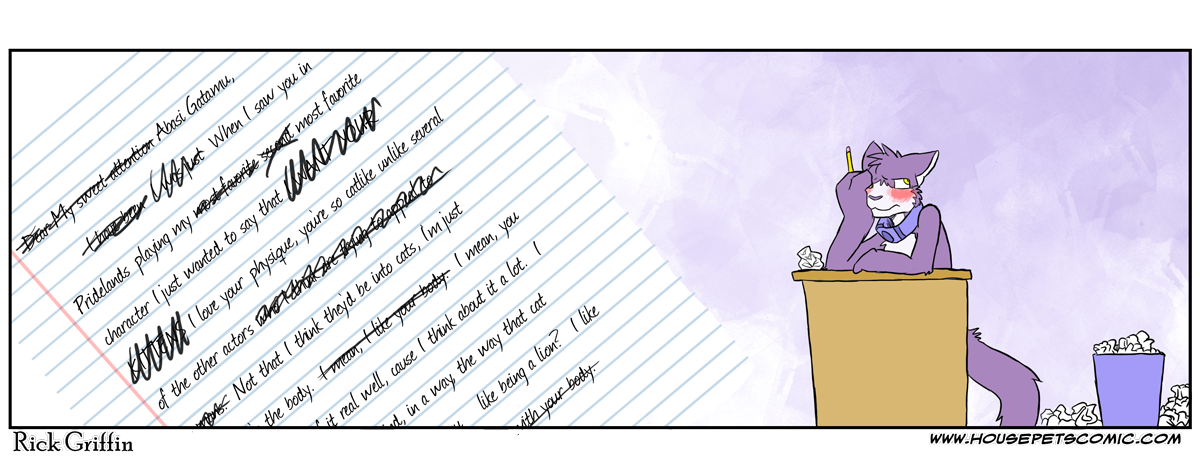 Dear My sweet attention Abasi Gatamu,
just When I saw you in
Pridelands playing my most favorite second most favorite
character I just wanted to say that
I love your physique, youre so catlike unlike several
of the other actors
Not that I think they'd be into cats, I'm just
the body. I mean, I like your body. I mean, you
it real well, cause I think about it a lot. I
in a way the way that cat
like being a lion? I like
with your body.
Rick Griffin
WWW.HOUSEPETSCOMIC.COM